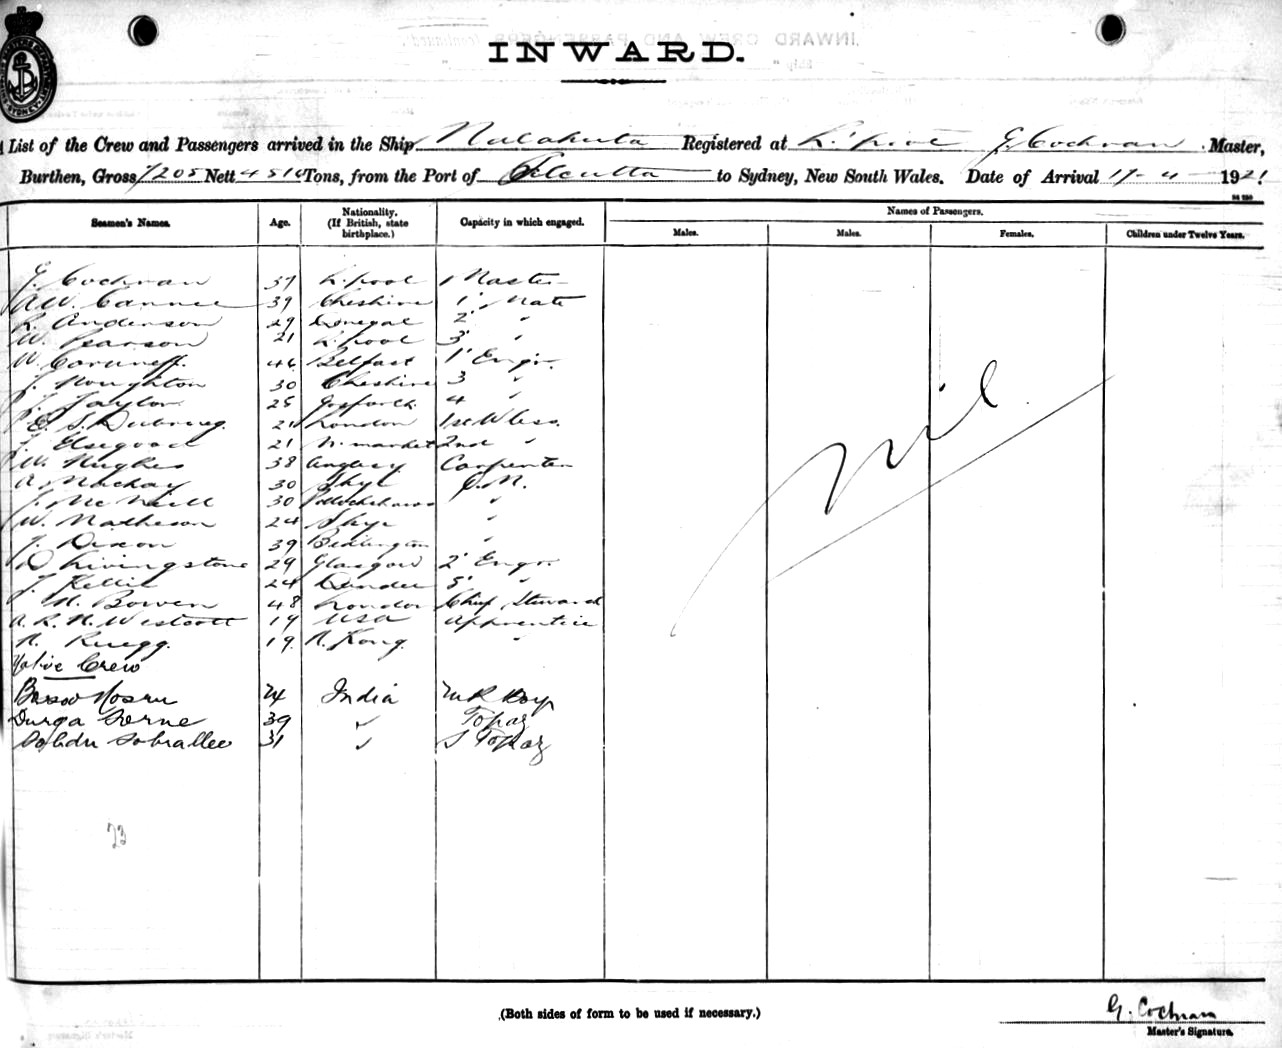 INWARD.
List of the Crew and Passengers arrived in the Ship Malakuta Registered at L'pool G. Cochran Master,
Burthen, Gross 7205 Nett 4516 Tons, from the Port of Calcutta to Sydney, New South Wales. Date of Arrival 17-4-1921
Seamen's Names. Age. Nationality. (If British, state birthplace.) Capacity in which engaged. Names of Passengers.
Males. Males. Females. Children under Twelve Years.
G. Cochran 37 L.pool Master
39 Cheshire 1' Mate
R. Anderson 29 Donegal 2' "
W. Pearson 21 L.pool 3' "
W. 46 Belfast 1' Engr.
J. Houghton 30 Cheshire 3 "
J. Taylor 25 Gosforth 4 "
E. S. 21 London 1st W'less.
J. Elsegood 21 N. market 2nd "
W. Hughes 38 Anglesey Carpenter
A. Mackay 30 Skye Q.M.
J. McNeill 30 Pollockshaws "
W. Matheson 24 Skye "
J. Dixon 39 Bedlington "
D. Livingstone 29 Glasgow 2' Engr
J. Kellie 24 Dundee 5' "
H. Bowen 48 London Chief Steward
A. R. H. Westcott 19 USA Apprentice
R. Ruegg. 19. H. Kong. "
Native Crew
24 India
Durga 39 " Topaz
31 " S Topaz
nil
73
(Both sides of form to be used if necessary.)
G. Cochran
Master's Signature.